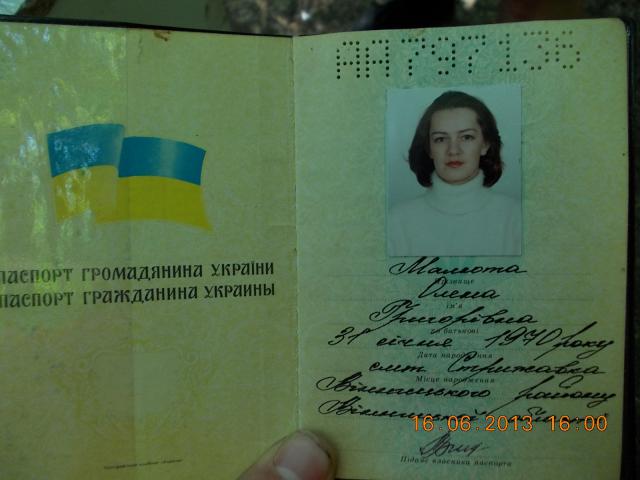 ПАСПОРТ ГРОМАДЯНИНА УКРАЇНИ
ПАСПОРТ ГРАЖДАНИНА УКРАИНЫ
АА797136
Прізвище
Олена
Ім'я
Григорівна
По батькові
31 січня 1970 року
Дата народження
смт. Стрижавка
Місце народження
Вінницького району
Вінницької
16.06.2013 16:00
Підпис власника паспорта